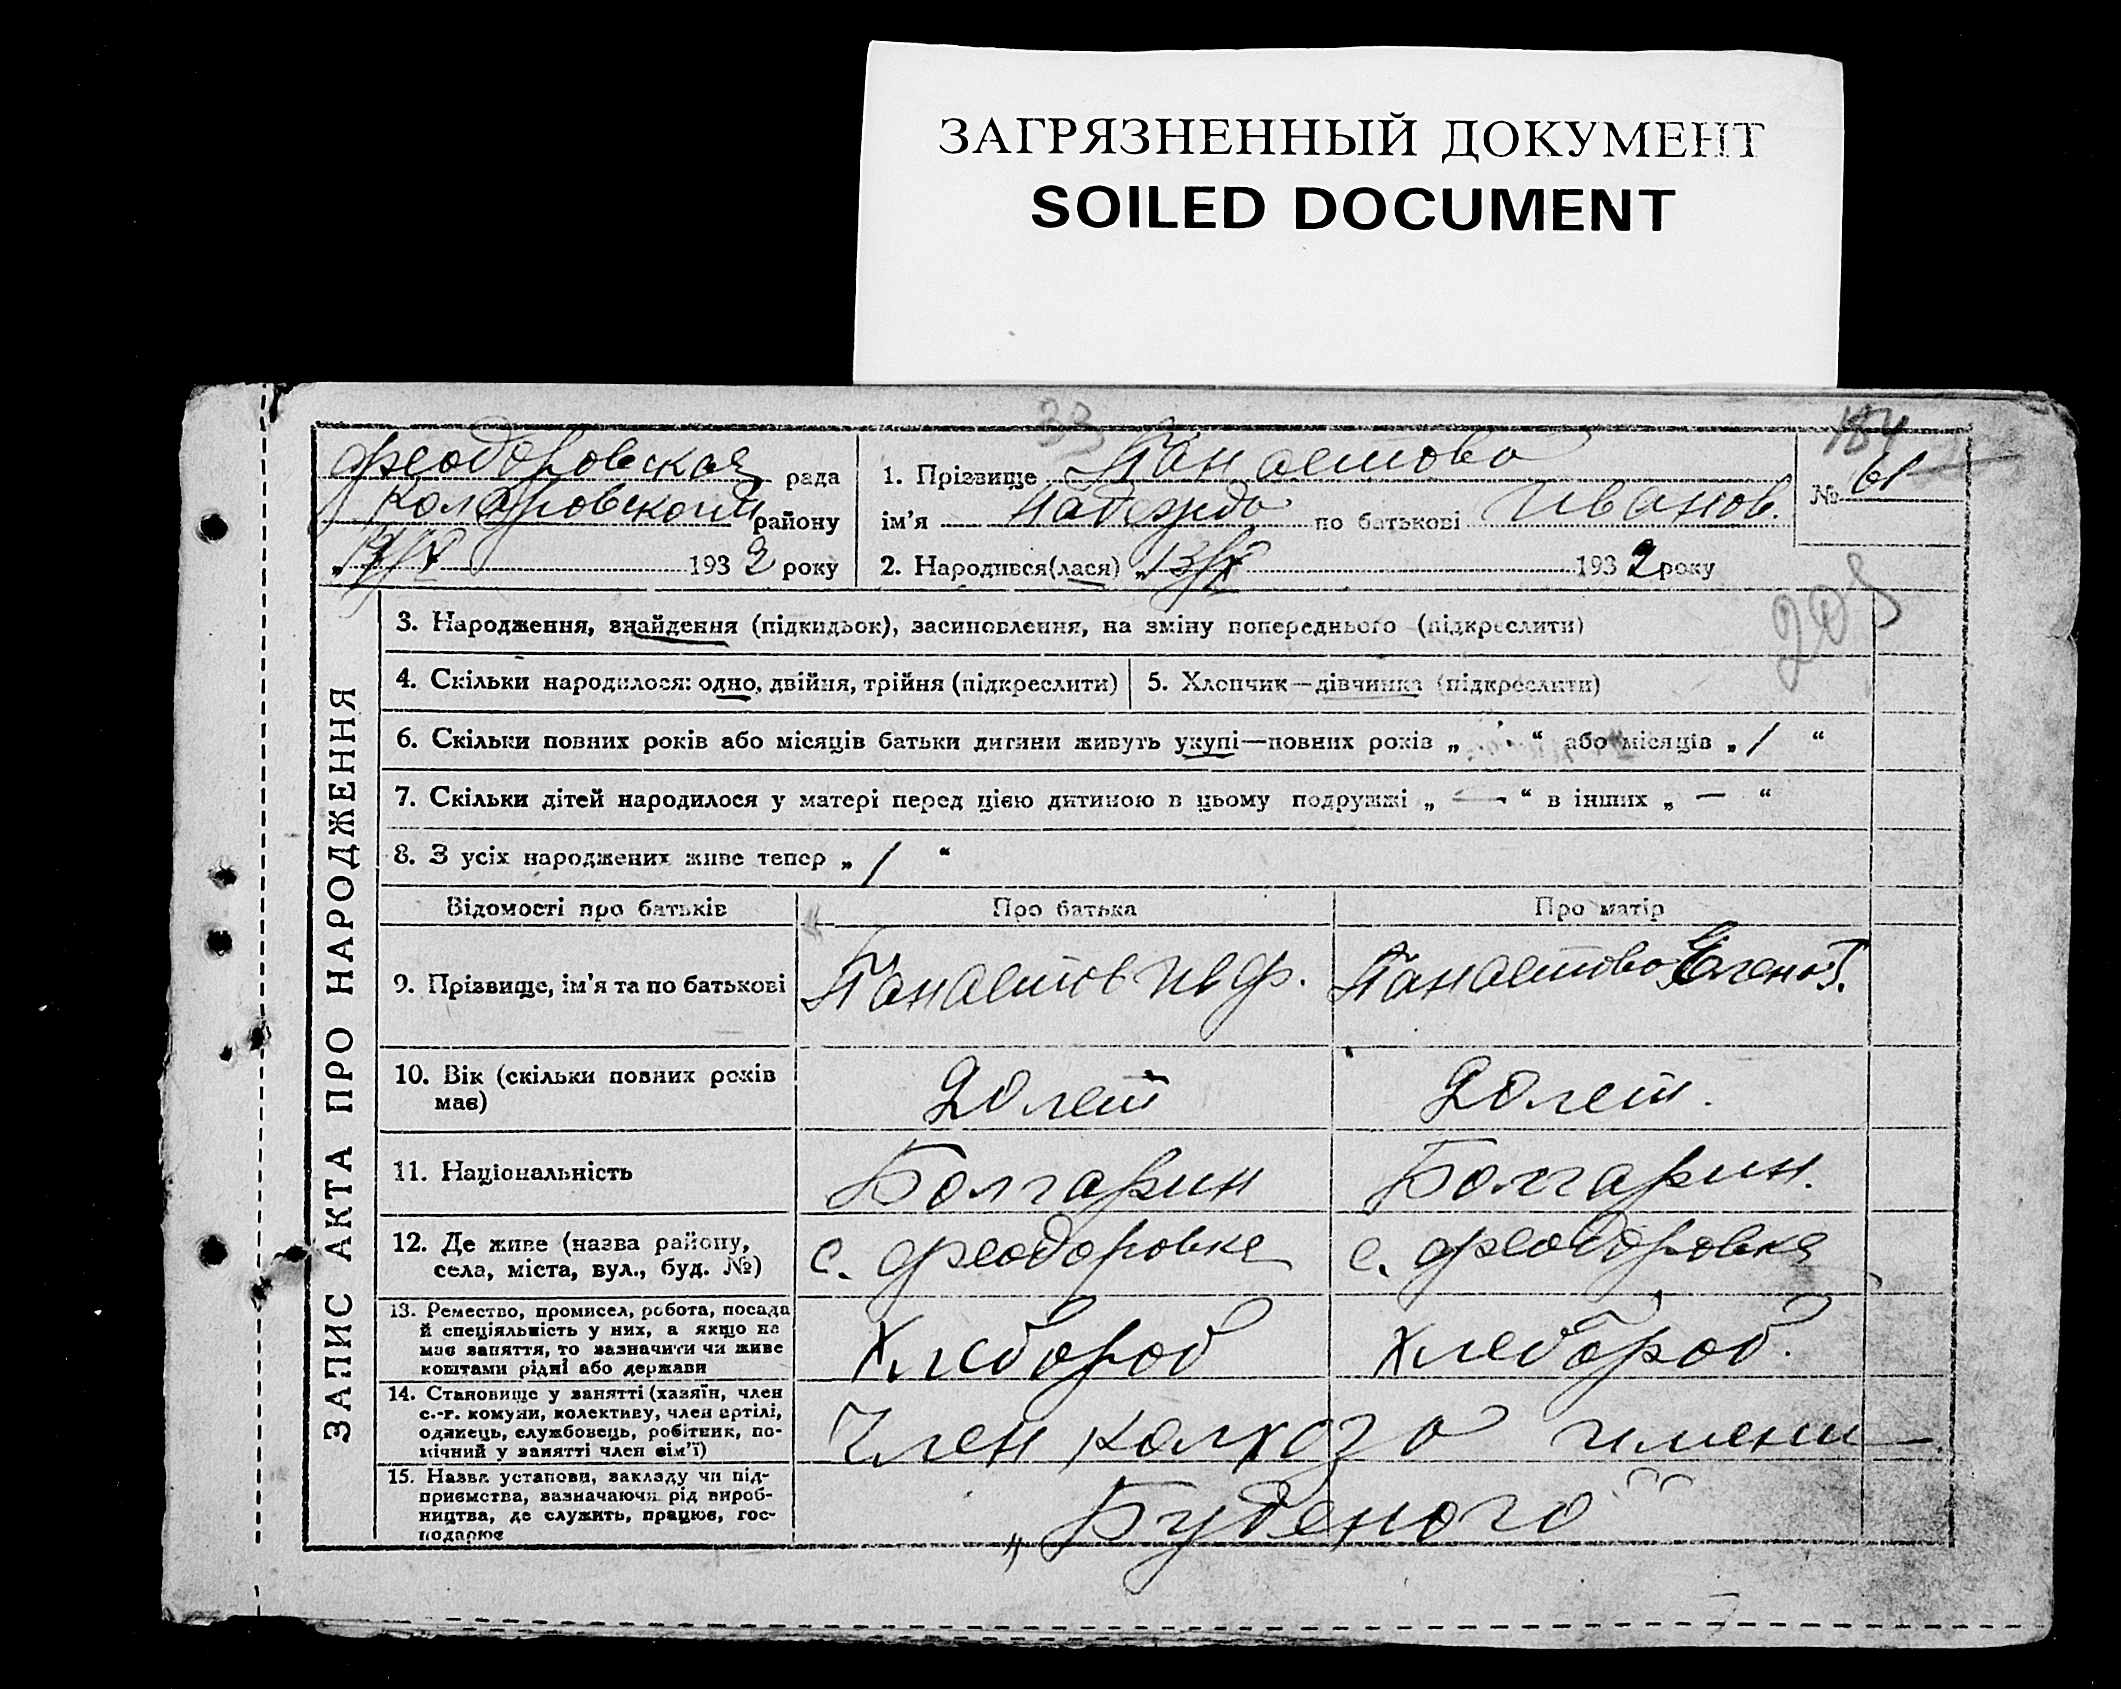 ЗАГРЯЗНЕННЫЙ ДОКУМЕНТ
SOILED DOCUMENT
33
184
Феодоровская рада
Коларовского району
193 2 року
1. Прізвище Панаетова
ім'я Надежда по батькові Иванов.
№ 61
2. Народився(лася) „13/X 193 2 року
205
ЗАПИС АКТА ПРО НАРОДЖЕННЯ
3. Народження, знайдення (підкидьок), засиновлення, на зміну попереднього (підкреслити)
4. Скільки народилося: одно, двійня, трійня (підкреслити)
5. Хлопчик—дівчинка (підкреслити)
6. Скільки повних років або місяців батьки дитини живуть укупі—повних років „ “ або місяців „ / “
7. Скільки дітей народилося у матері перед цією дитиною в цьому подружжі „ — “ в інших „ — “
8. З усіх народжених живе тепер „ / “
Відомості про батьків
Про батька
Про матір
9. Прізвище, ім'я та по батькові
Панаетов Ив Ф.
Панаетова Елена Г.
10. Вік (скільки повних років
має)
20 лет
20 лет.
11. Національність
Болгарин
Болгарин.
12. Де живе (назва району,
села, міста, вул., буд. №)
с. Феодоровка
с. Феодоровка
13. Ремество, промисел, робота, посада
й спеціяльність у них, а якщо не
має заняття, то зазначити чи живе
коштами рідні або держави
Хлебороб
Хлебороб.
14. Становище у занятті (хазяїн, член
с.-г. комуни, колективу, член артілі,
одинець, службовець, робітник, по-
мічний у занятті член сім'ї)
Член колхоза имени
15. Назва установи, закладу чи під-
приємства, зазначаючи рід вироб-
ництва, де служить, працює, гос-
подарює
„Буденого“